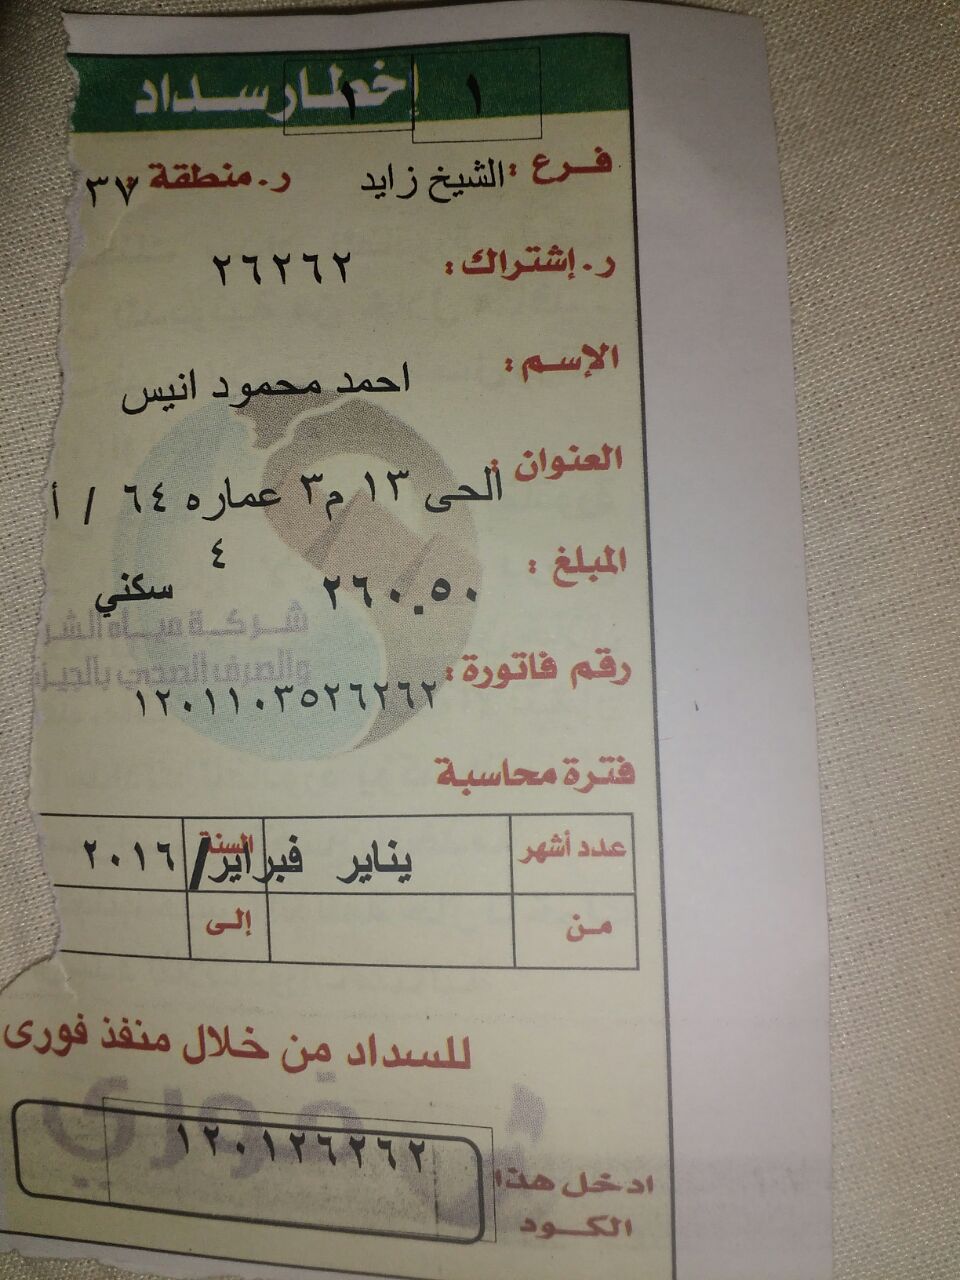 إخطار سداد
١ ١
فرع : الشيخ زايد ر. منطقة : ٣٧
ر. إشتراك : ٢٦٢٦٢
الإسم :
احمد محمود انيس
العنوان :
الحى ١٣ م٣ عماره ٦٤ / أ
٤
المبلغ :
٢٦٠.٥٠ سكني
شركة مياه الشر
والصرف الصحي بالجيز
رقم فاتورة :
١٢٠١١٠٣٥٢٦٢٦٢
فترة محاسبة
عدد أشهر يناير فبراير/ السنة ٢٠١٦
من إلى
للسداد من خلال منفذ فورى
فوري
ادخل هذا ١٢٠١٢٦٢٦٢
الكود